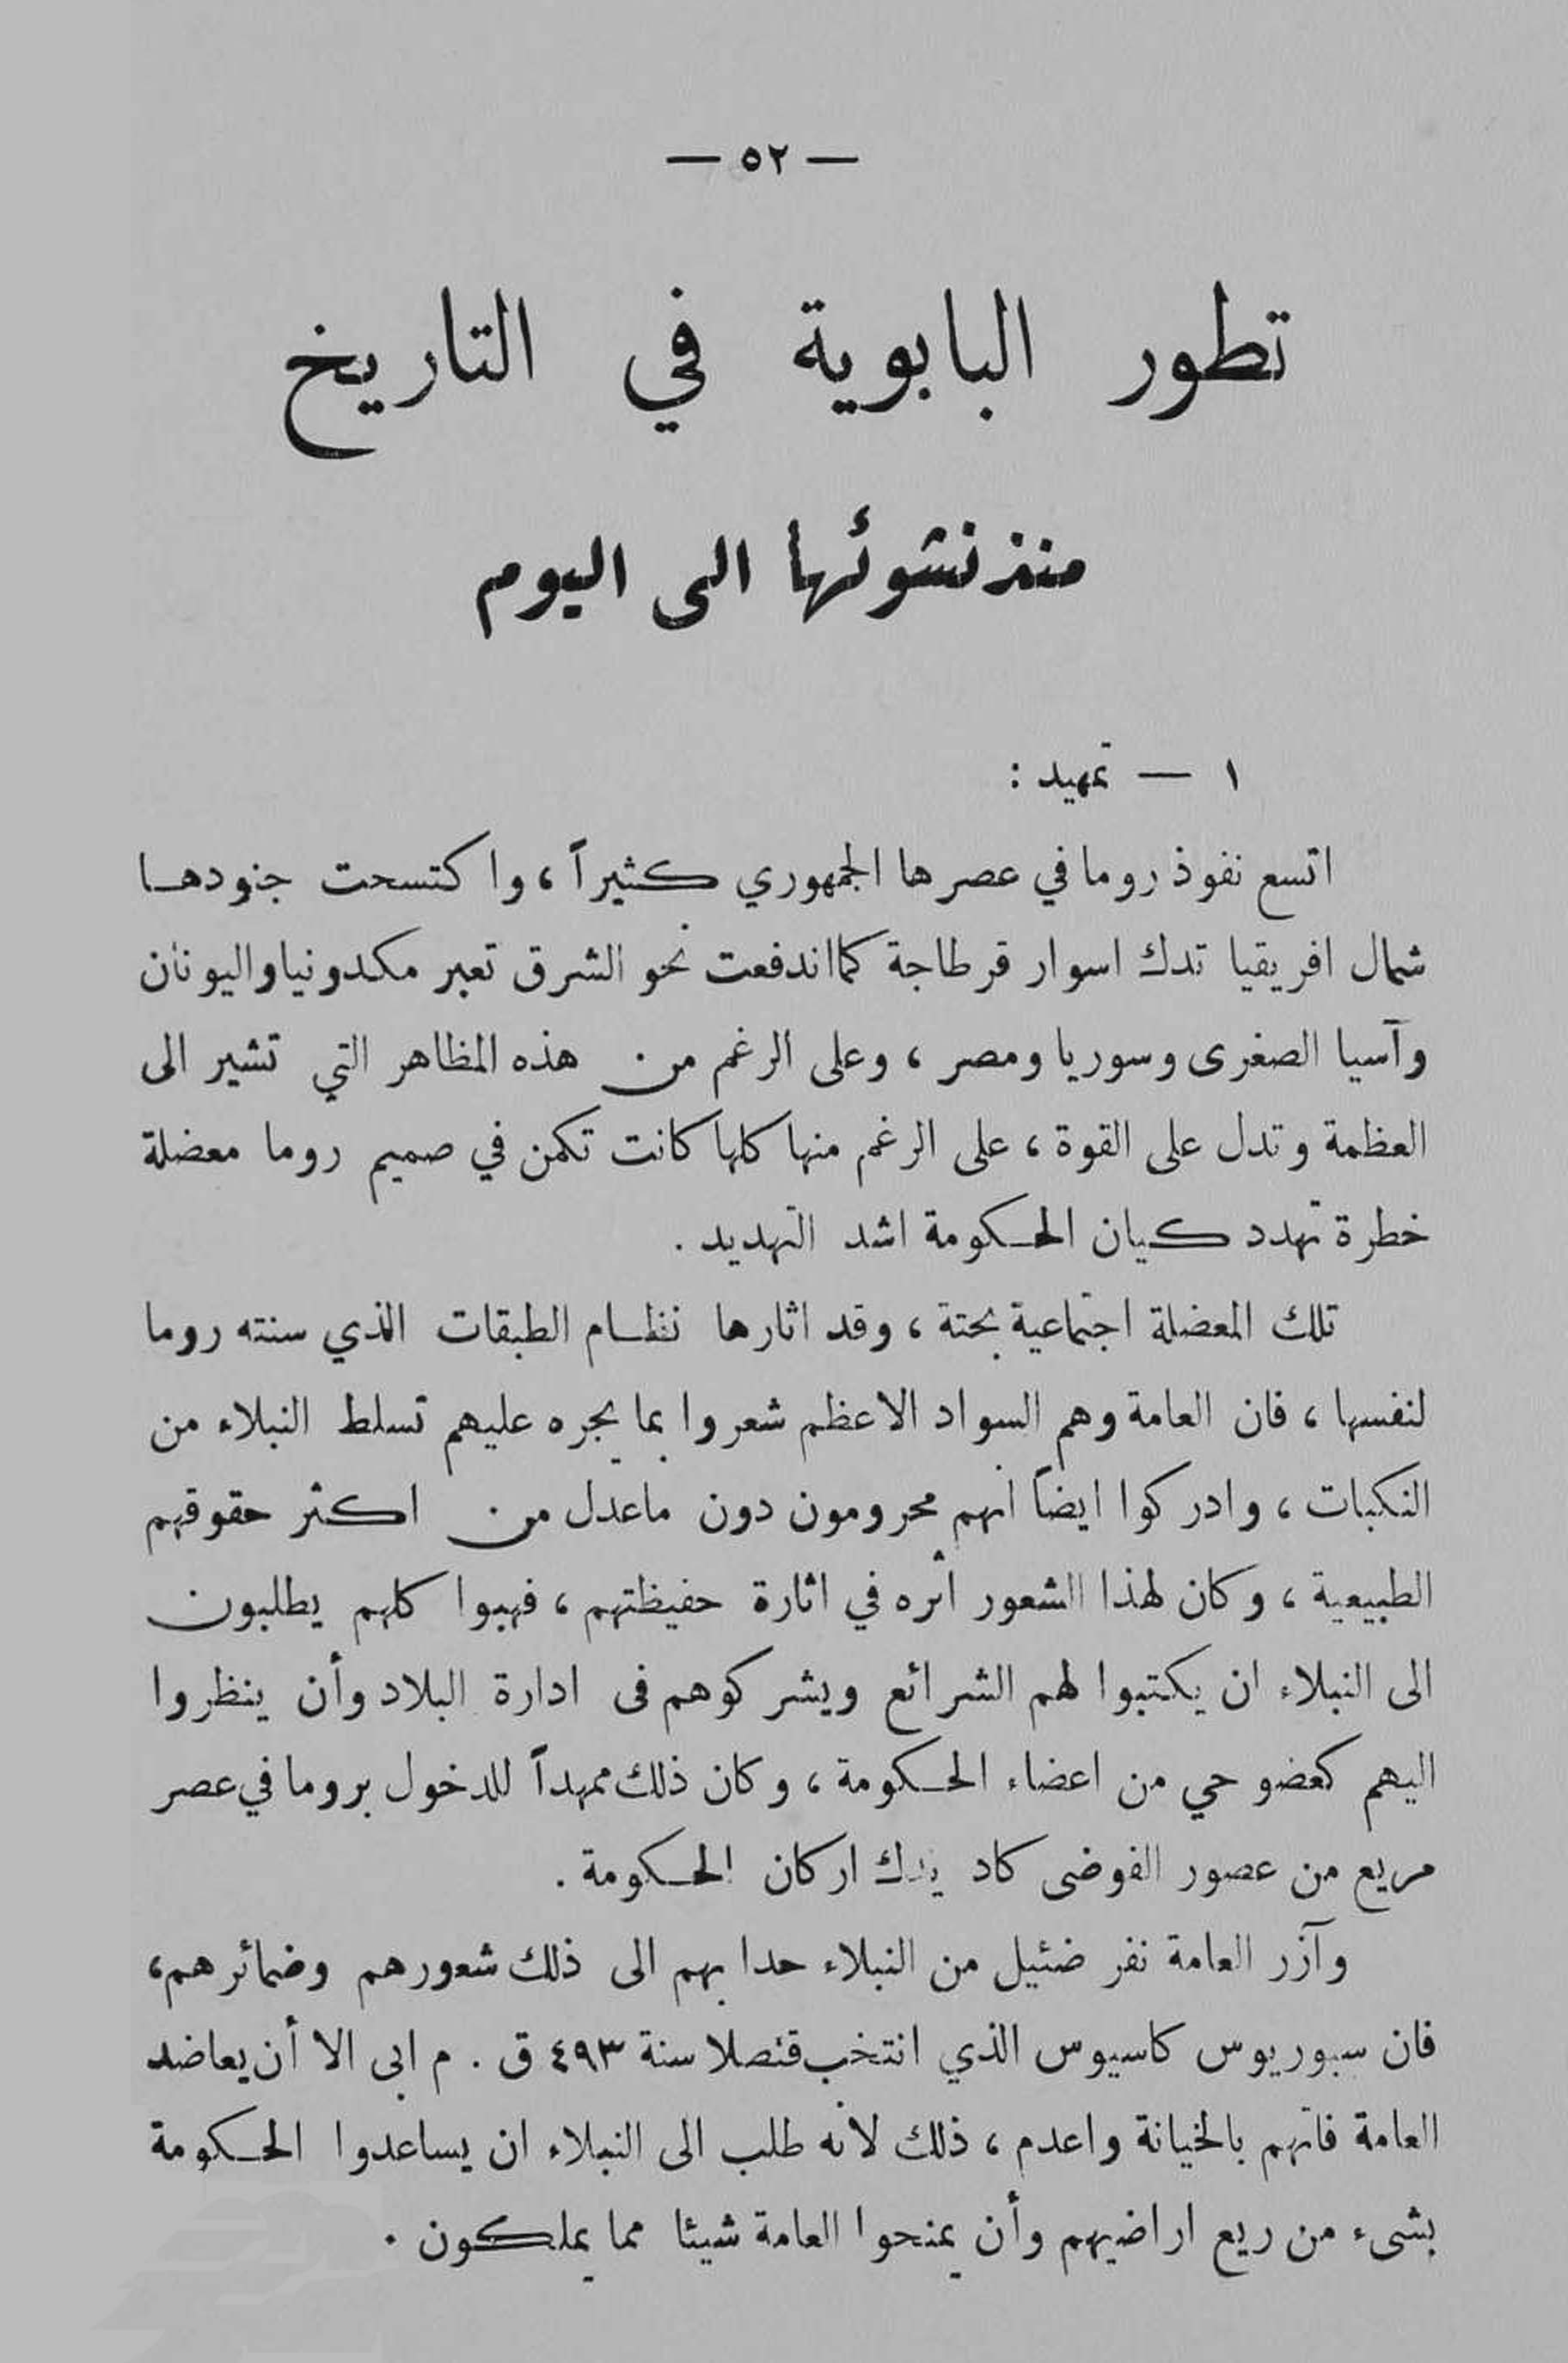 — ٥٢ —
تطور البابوية في التاريخ
منذ نشوئها الى اليوم
١ — تمهيد :
اتسع نفوذ روما في عصرها الجمهوري كثيراً ، واكتسحت جنودها
شمال افريقيا تدك اسوار قرطاجة كما اندفعت نحو الشرق تعبر مكدونيا واليونان
وآسيا الصغرى وسوريا ومصر ، وعلى الرغم من هذه المظاهر التي تشير الى
العظمة وتدل على القوة ، على الرغم منها كلها كانت تكمن في صميم روما معضلة
خطرة تهدد كيان الحكومة اشد التهديد .
تلك المعضلة اجتماعية بحتة ، وقد اثارها نظام الطبقات الذي سنته روما
لنفسها ، فان العامة وهم السواد الاعظم شعروا بما يجره عليهم تسلط النبلاء من
النكبات ، وادركوا ايضاً انهم محرومون دون ما عدل من اكثر حقوقهم
الطبيعية ، وكان لهذا الشعور أثره في اثارة حفيظتهم ، فهبوا كلهم يطلبون
الى النبلاء ان يكتبوا لهم الشرائع ويشركوهم فى ادارة البلاد وأن ينظروا
اليهم كعضو حي من اعضاء الحكومة ، وكان ذلك ممهداً للدخول بروما في عصر
مريع من عصور الفوضى كاد يدك اركان الحكومة .
وآزر العامة نفر ضئيل من النبلاء حدا بهم الى ذلك شعورهم وضمائرهم ،
فان سبوريوس كاسيوس الذي انتخب قنصلا سنة ٤٩٣ ق . م ابى الا أن يعاضد
العامة فاتهم بالخيانة واعدم ، ذلك لانه طلب الى النبلاء ان يساعدوا الحكومة
بشىء من ريع اراضيهم وأن يمنحوا العامة شيئا مما يملكون .